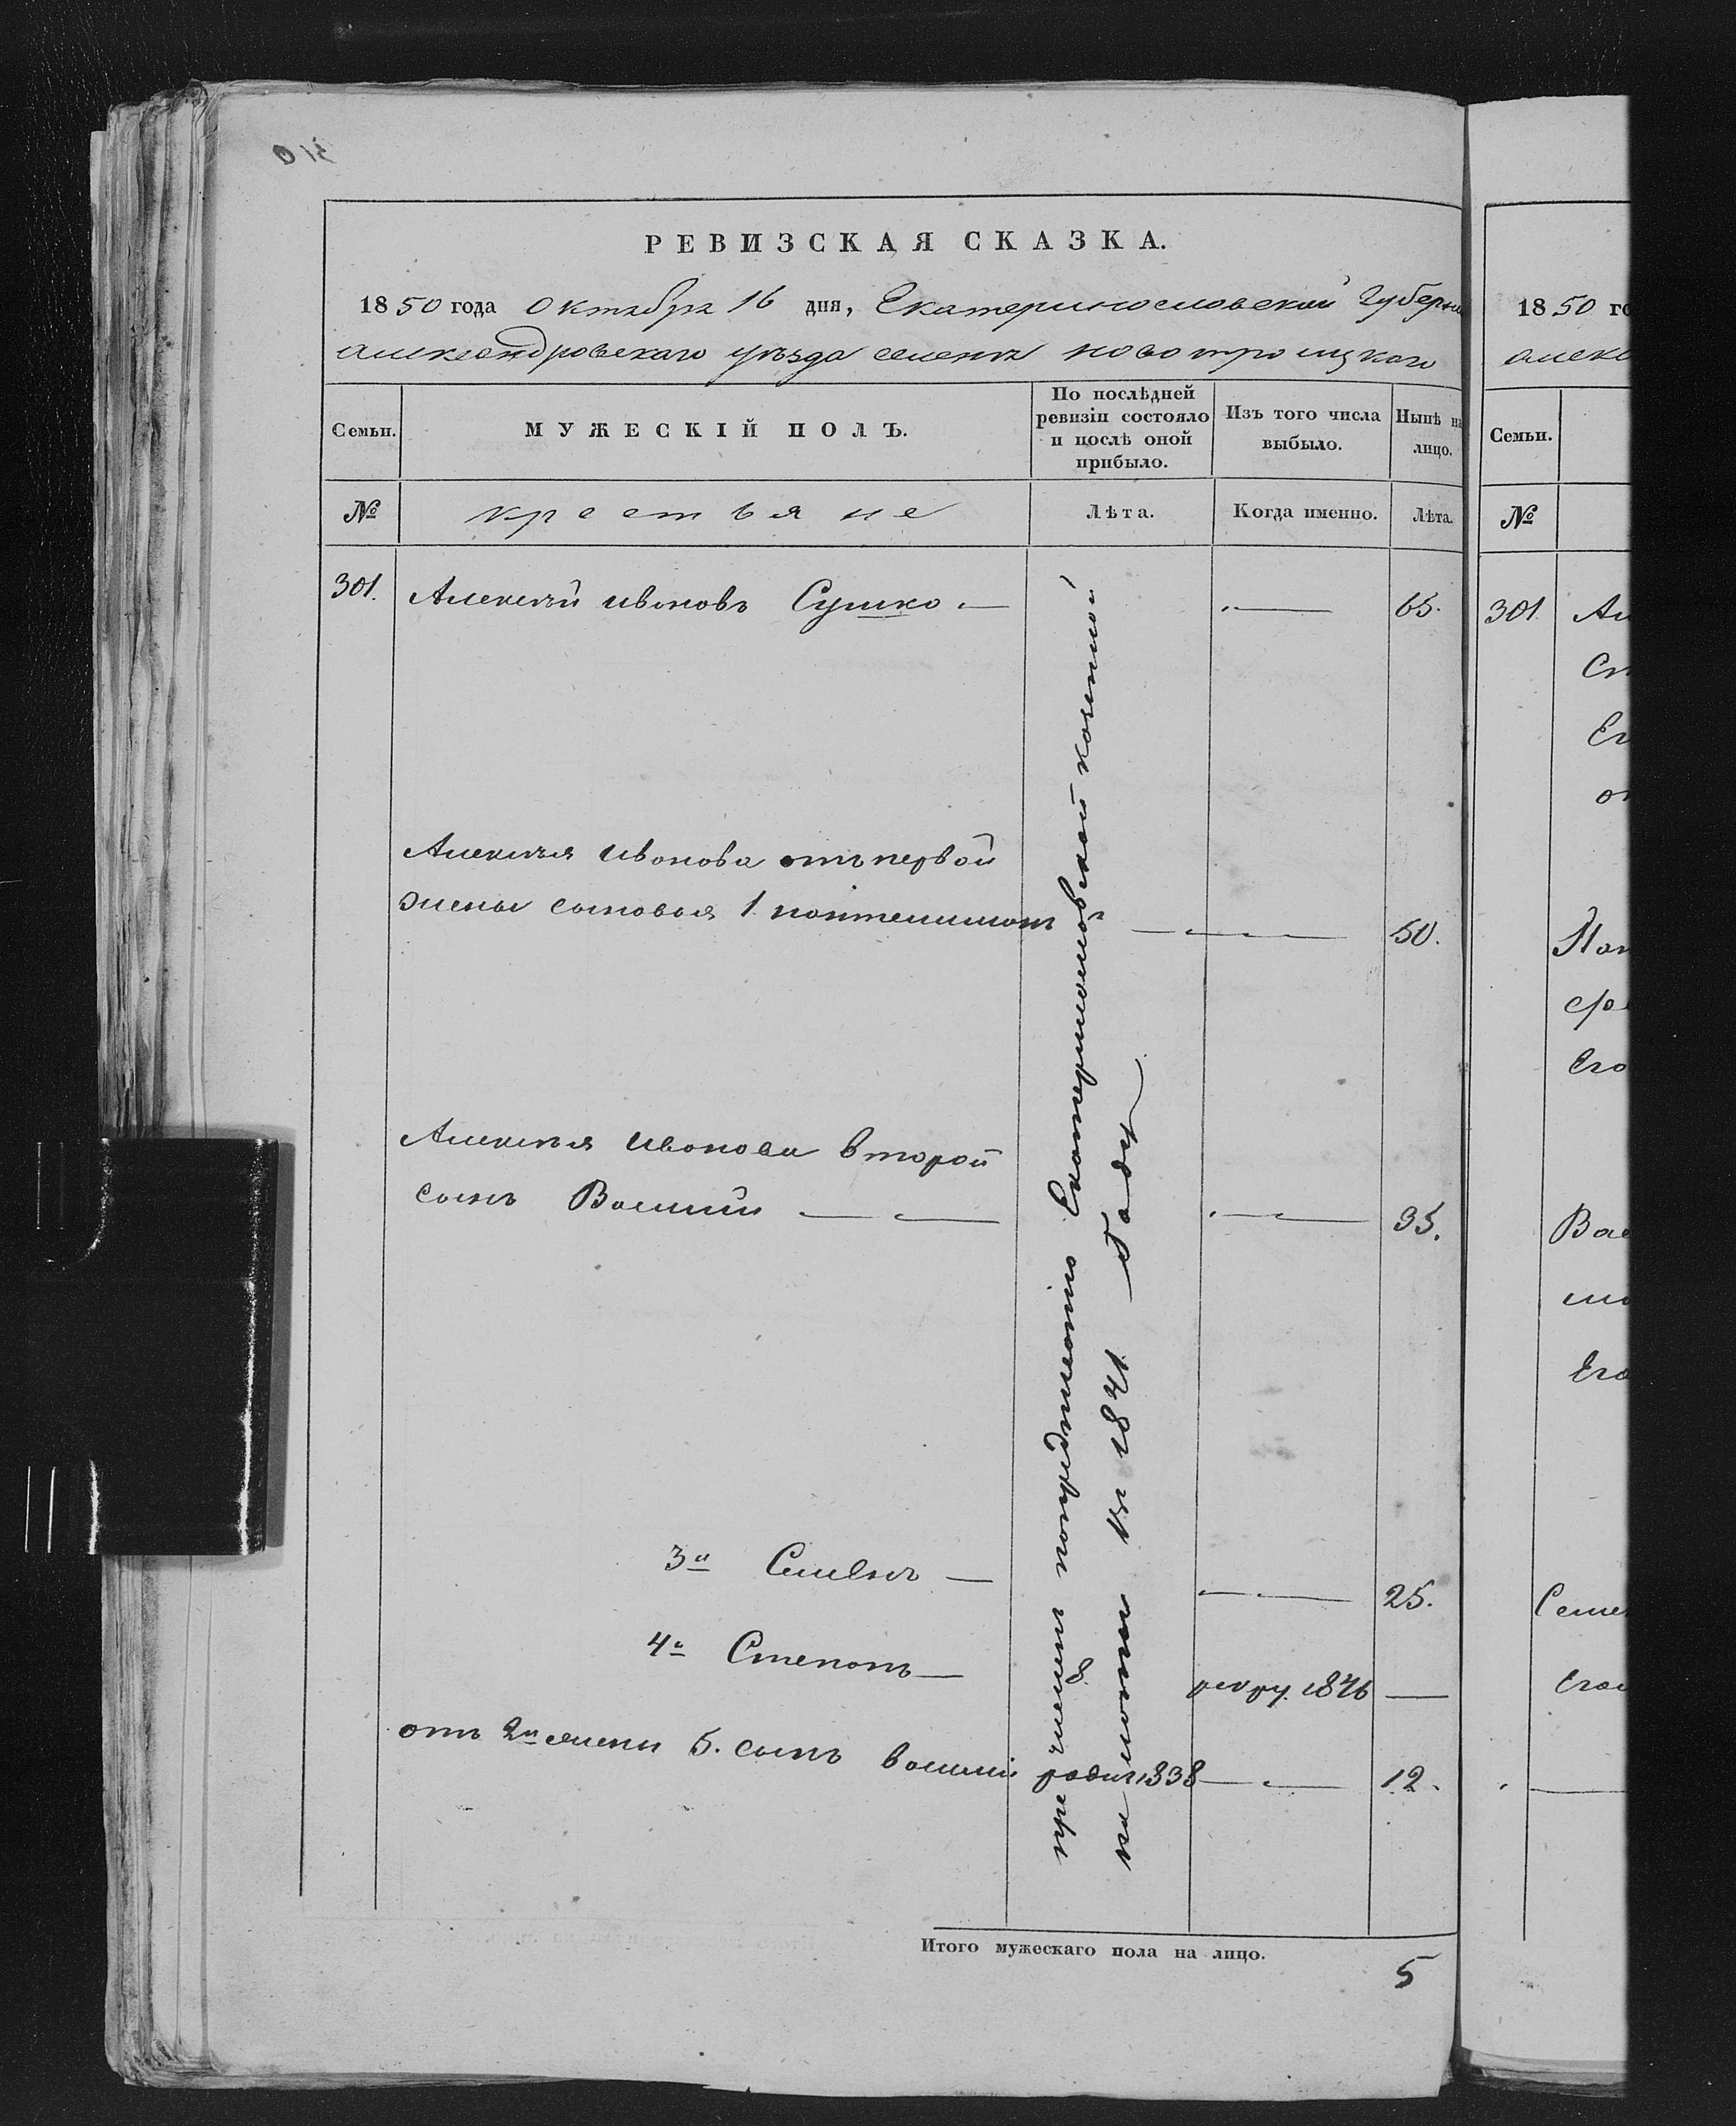 РЕВИЗСКАЯ СКАЗКА.
1850 года Октября 16 дня, Екатеринославской Губерніи
Александровскаго уѣзда селенія новотроицкаго
Семьи.
МУЖЕСКІЙ ПОЛЪ.
По послѣдней
ревизіи состояло
и послѣ оной
прибыло.
Изъ того числа
выбыло.
Нынѣ на
лицо.
№
крестьяне
Лѣта.
Когда именно.
Лѣта.
301. Алексѣй ивановъ Сушко 65.
Алексѣя иванова отъ первой
жены сыновья 1 пантелимонъ 50.
Алексѣя иванова второй
сынъ Василій 35.
3й Семенъ 25.
4й Степанъ рекру. 1846
отъ 2й жены 5. сынъ василій родил 1838 12.
причислен по предписанію Екатеринославской казенной
палаты въ 1841 году
Итого мужескаго пола на лицо.
5
1850 го
алекс
Семьи.
№
301 Ал
Ег
Пан
Его
Вас
Его
Семен